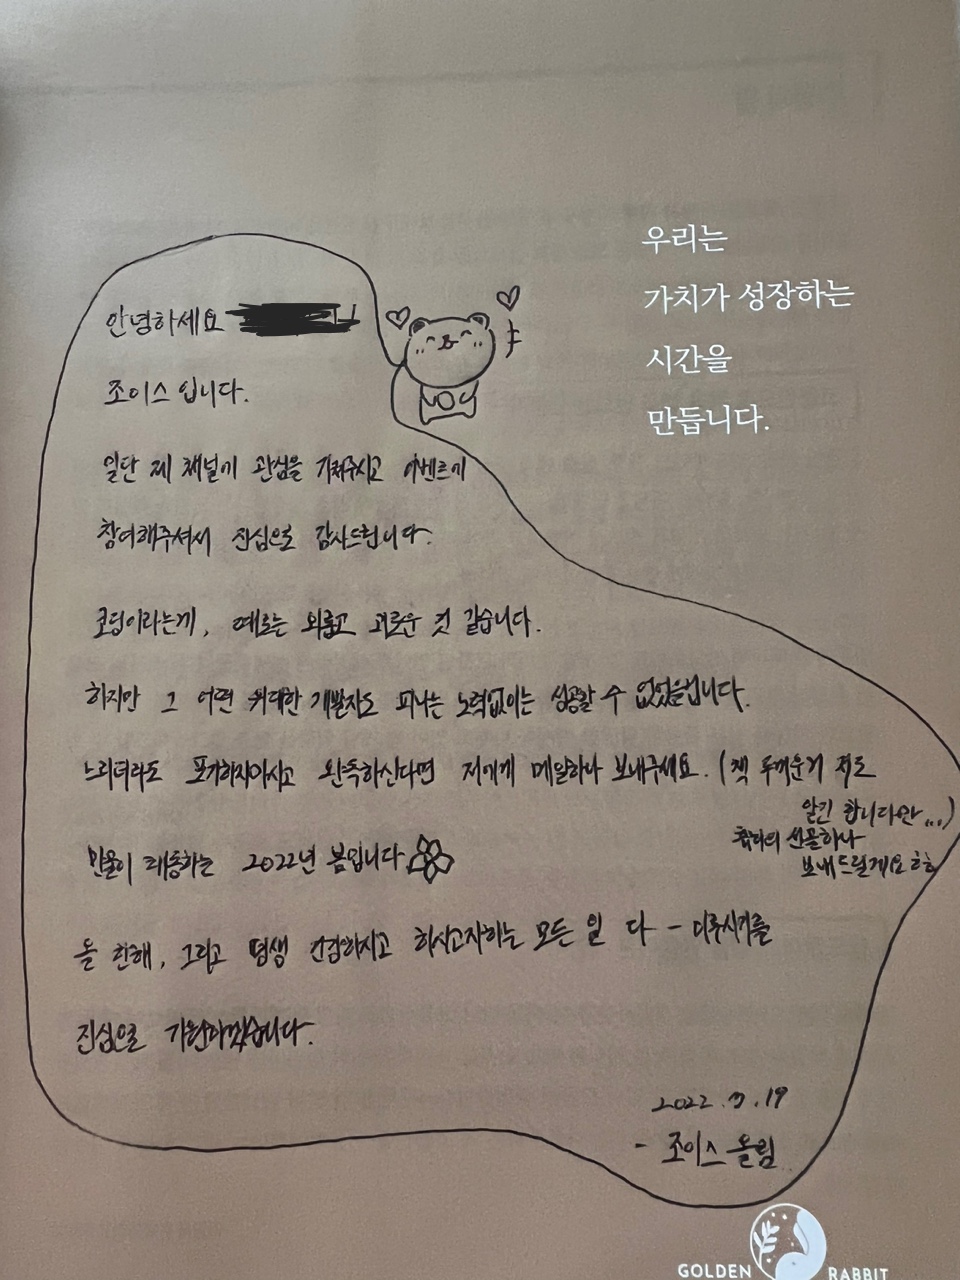 우리는
가치가 성장하는
시간을
만듭니다.
안녕하세요
조이스 입니다.
일단 제 채널에 관심을 가져주시고 이벤트에
참여해주셔서 진심으로 감사드립니다.
코딩이라는게, 때로는 외롭고 괴로운 것 같습니다.
하지만 그 어떤 위대한 개발자도 피나는 노력없이는 성공할 수 없었을겁니다.
느리더라도 포기하지마시고 완독하신다면 저에게 메일하나 보내주세요. (책 두꺼운거 저도
알긴 합니다만...)
선물하나
보내드릴게요 ㅎㅎ
만물이 태동하는 2022년 봄입니다
올 한해, 그리고 평생 건강하시고 하시고자하는 모든 일 다 - 이루시기를
진심으로 기원하겠습니다.
2022. 3. 19
- 조이스 올림
GOLDEN RABBIT